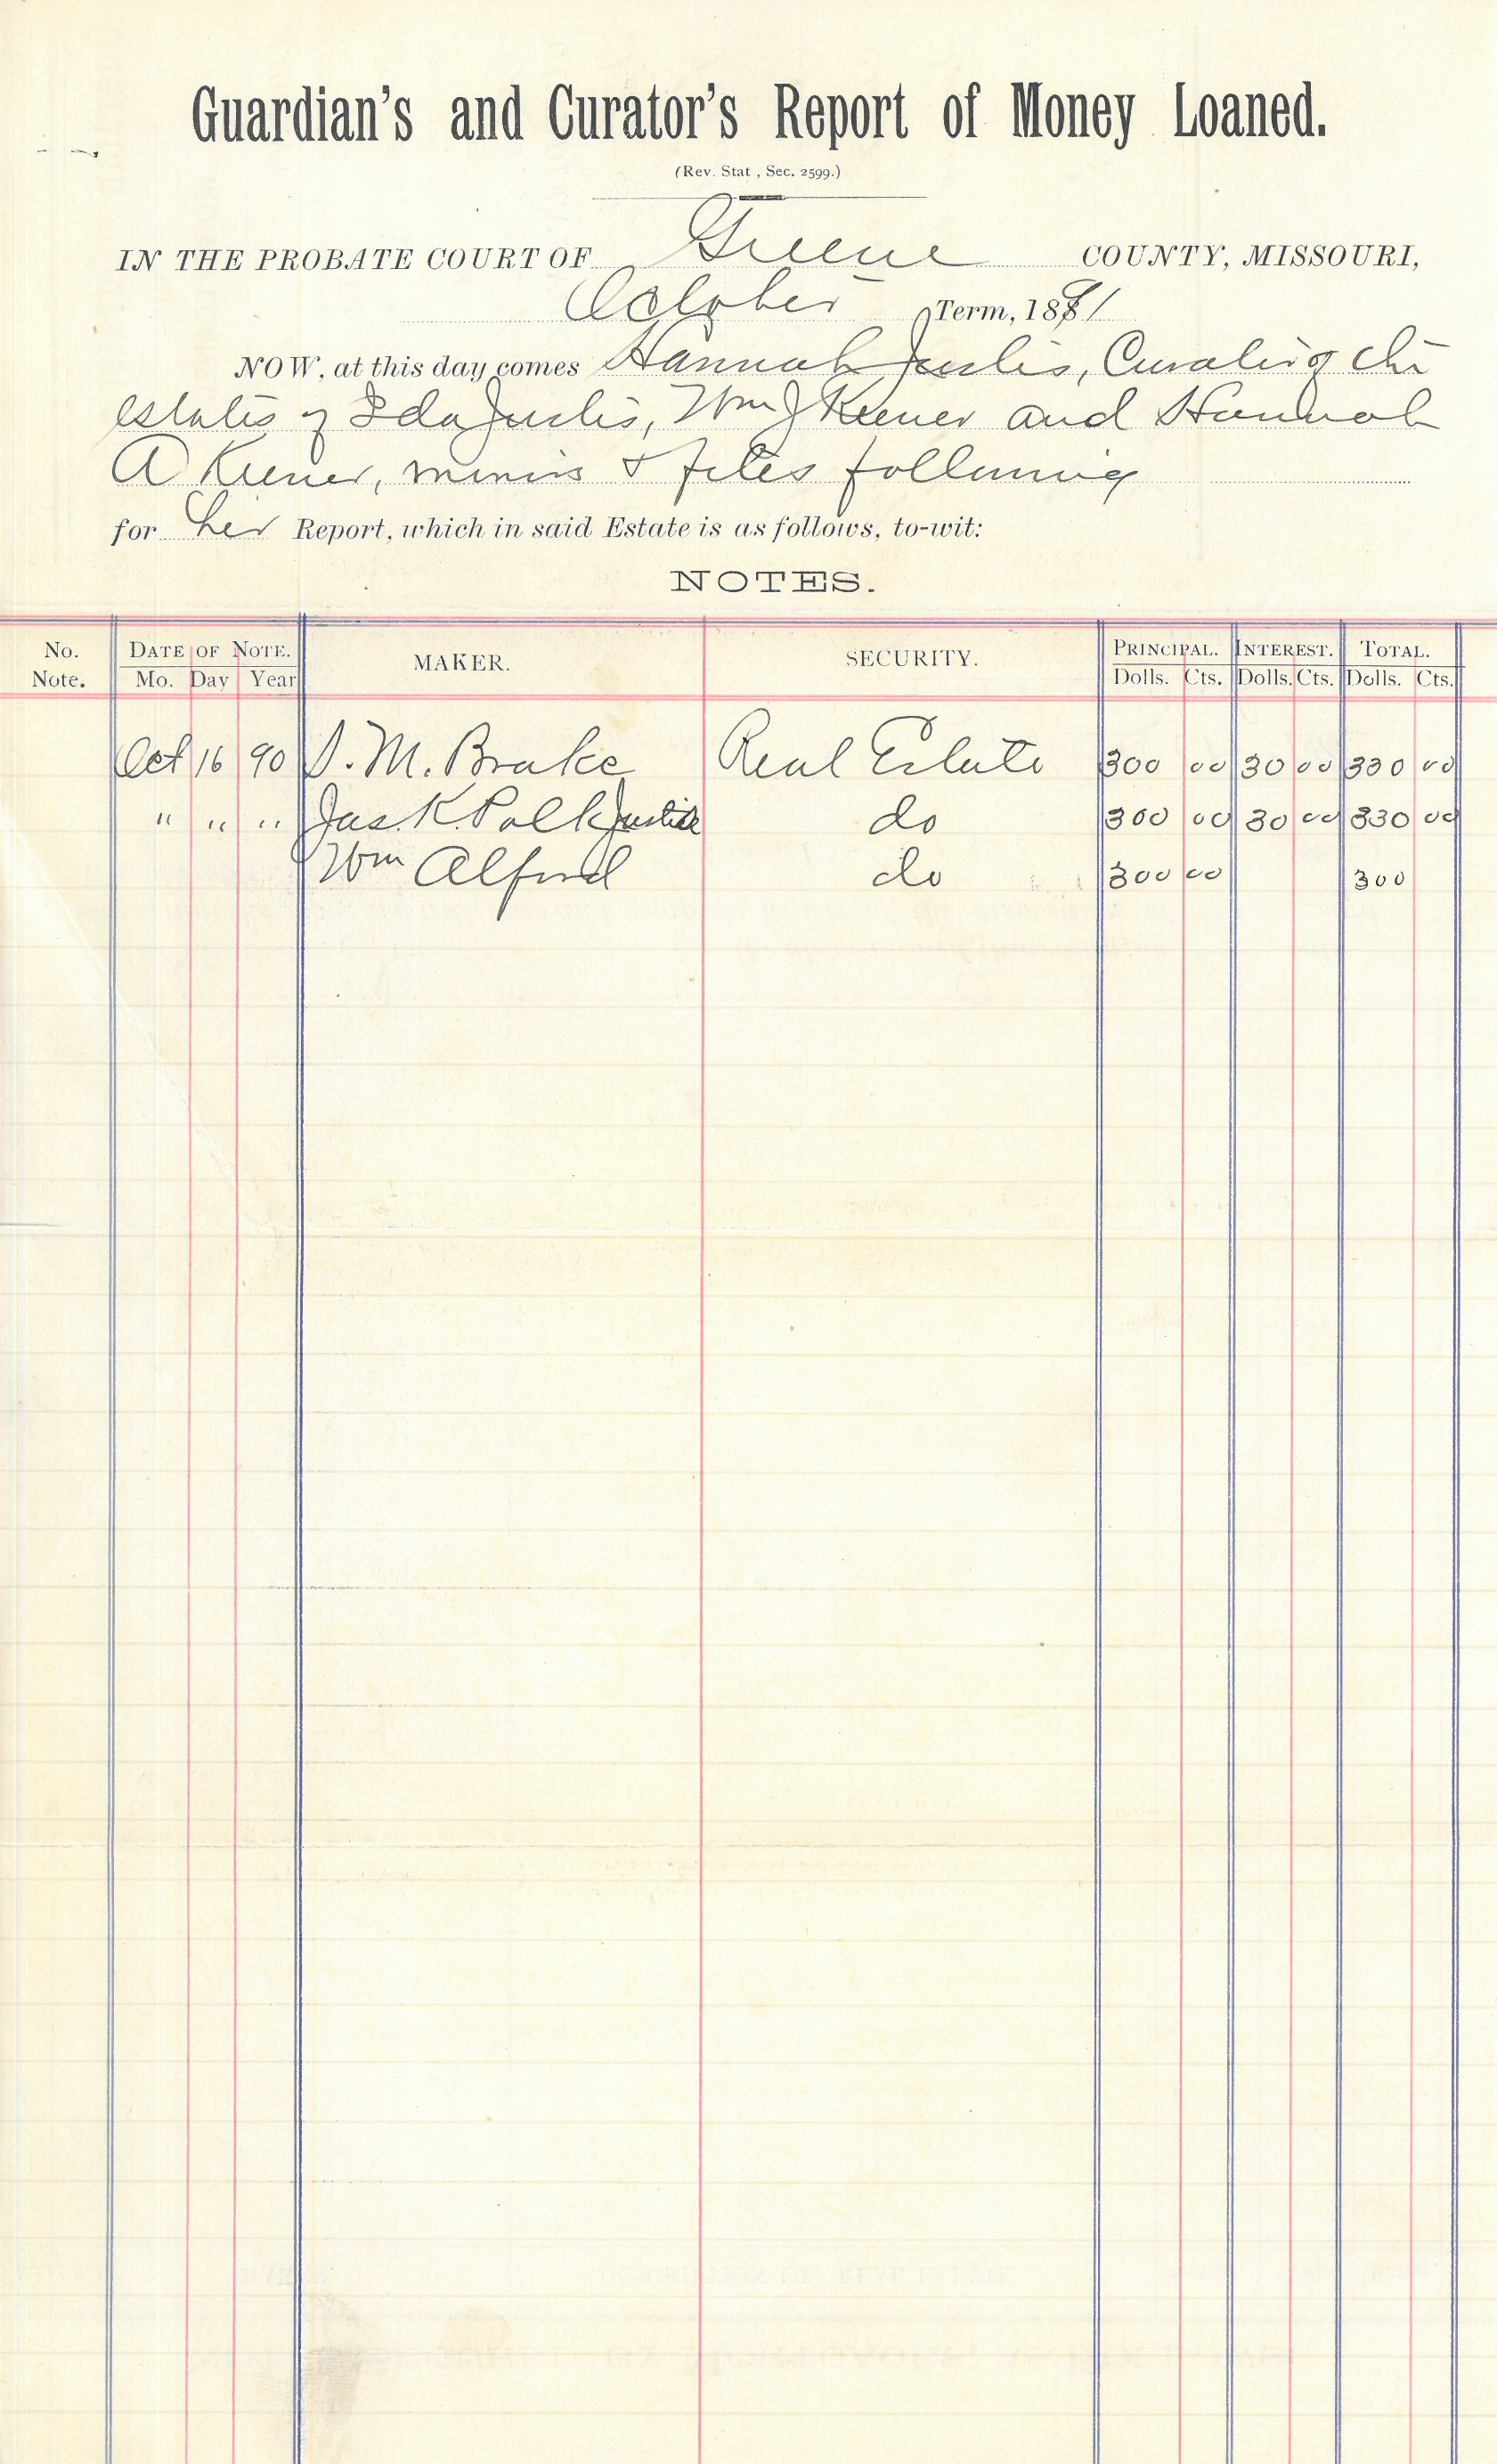 Guardian's and Curator's Report of Money Loaned.
(Rev. Stat , Sec. 2599.)
IN THE PROBATE COURT OF Greene COUNTY, MISSOURI,
October Term, 1891
NOW, at this day comes Hannah Justis, Curator of the
estates of Ida Justis, Wm J Keener and Hannah
A Keener, minors & files following
for her Report, which in said Estate is as follows, to-wit:
NOTES.
No. Note. DATE OF NOTE. Mo. Day Year MAKER. SECURITY. PRINCIPAL. Dolls. Cts. INTEREST. Dolls. Cts. TOTAL. Dolls. Cts.
Oct 16 90 M. Brake Real Estate 300 00 30 00 330 00
" " " Jas. K. Polk Justice do 300 00 30 00 330 00
Wm Alford do 300 00 300